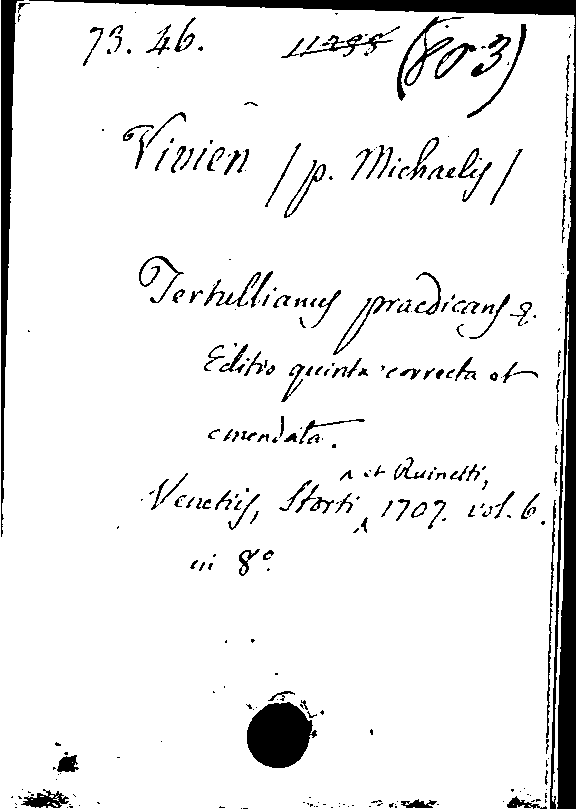 73. 46. 11298 (803)
Vivien / p. Michaelis /
Tertullianus praedicans &.
Editio quinta correcta et
emendata.
^ et Ruinetti,
Venetiis, Storti ^ 1707. vol. 6.
in 8°.